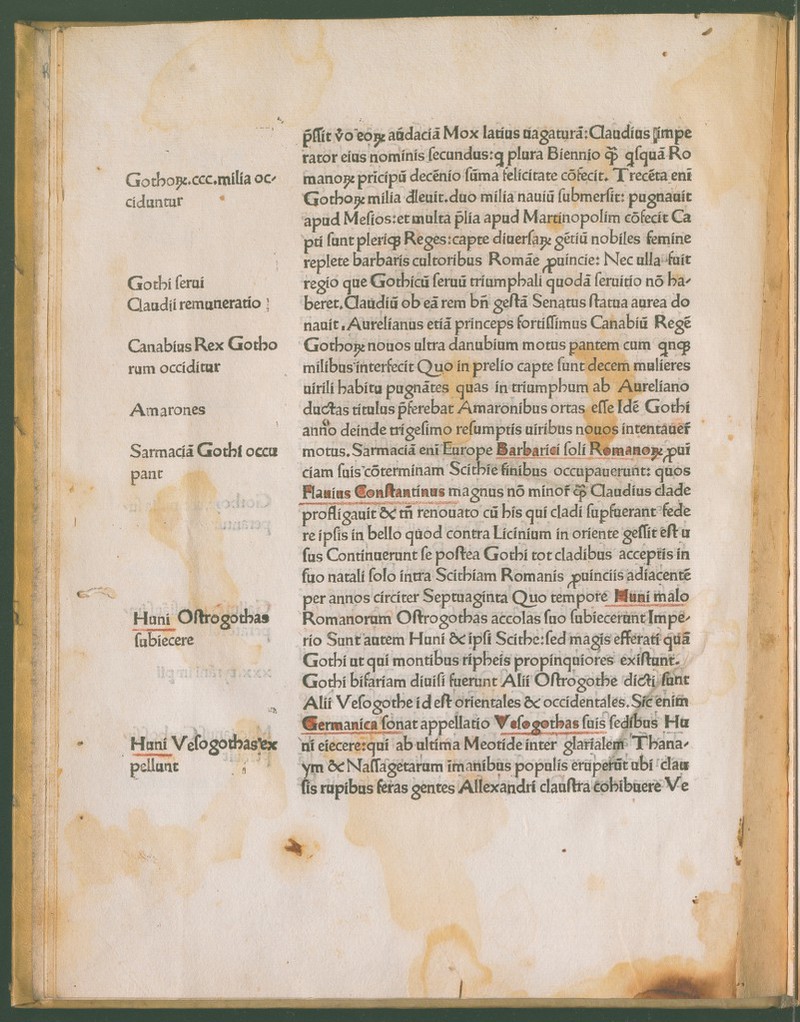 p̃ſſit v̊o eoꝝ aũdaciã Mox latius uagaturã: Claudius impe
rator eius nominis ſecundus: ꝙ plura Biennio ꝙ̃ q̃ſquã Ro
Gothoꝝ.ccc.milia oc-
manoꝝ prĩcipũ decẽnio ſũma felicitate cõfecit. Trecẽta enĩ
ciduntur
Gothoꝝ milia d̃leuit.duo milia nauiũ ſubmerſit: pugnauit
apud Meſios: et multa p̃lia apud Martinopolim cõfecit Ca
pti ſunt pleriqꝫ Reges: capte diuerſaꝝ gẽtiũ nobiles femine
replete barbaris cultoribus Romãe ꝓuincie: Nec ulla fuit
Gothi ſerui
regio que Gothicũ ſeruũ triumphali quodã ſeruitio nõ ha-
Claudii remuneratio
beret. Claudiũ ob eã rem bñ geſtã Senatus ſtatua aurea do
nauit. Aurelianus etiã princeps fortiſſimus Canabiũ Regẽ
Canabius Rex Gotho
Gothoꝝ nouos ultra danubium motus pantem cum q̃nqꝫ
rum occiditur
milibus interfecit Quo in prelio capte ſunt decem mulieres
uirili habitu pugnãtes quas in triumphum ab Aureliano
Amarones
ductas titulus p̃ferebat Amaronibus ortas eſſe Idẽ Gothi
anño deinde trigeſimo reſumptis uiribus nouos intentauer̃
Sarmaciã Gothi occu
motus. Sarmaciã enĩ Europe Barbarici ſoli Romanoꝝ ꝓuĩ
pant
ciam ſuis cõterminam Scithie finibus occupauerunt: quos
Flauius Conſtantinus magnus nõ minor̃ ꝙ̃ Claudius clade
profligauit & tñ renouato cũ his qui cladi ſupfuerant fede
re ipſis in bello quod contra Licinium in oriente geſſit eſt u
ſus Continuerunt ſe poſtea Gothi tot cladibus acceptis in
ſuo natali ſolo intra Scithiam Romanis ꝓuinciis adiacentẽ
per annos circiter Septuaginta Quo tempore Huni malo
Huni Oſtrogothas
Romanorum Oſtrogothas accolas ſuo ſubiecerunt Impe-
ſubiecere
rio Sunt autem Huni & ipſi Scithe: ſed magis efferati quã
Gothi ut qui montibus ripheis propinquiores exiſtunt.
Gothi bifariam diuiſi fuerunt Alii Oſtrogothe dicti ſunt
Alii Veſogothe id eſt orientales & occidentales. Sic enim
Germanica ſonat appellatio Veſogothas ſuis ſedibus Hu
Huni Veſogothas ex
ni eiecere: qui ab ultima Meotide inter glarialem Thana-
pellunt
ym & Naſſagetarum ĩmanibus populis eruperũt ubi clau
ſis rupibus feras gentes Allexandri clauſtra cohibuere Ve